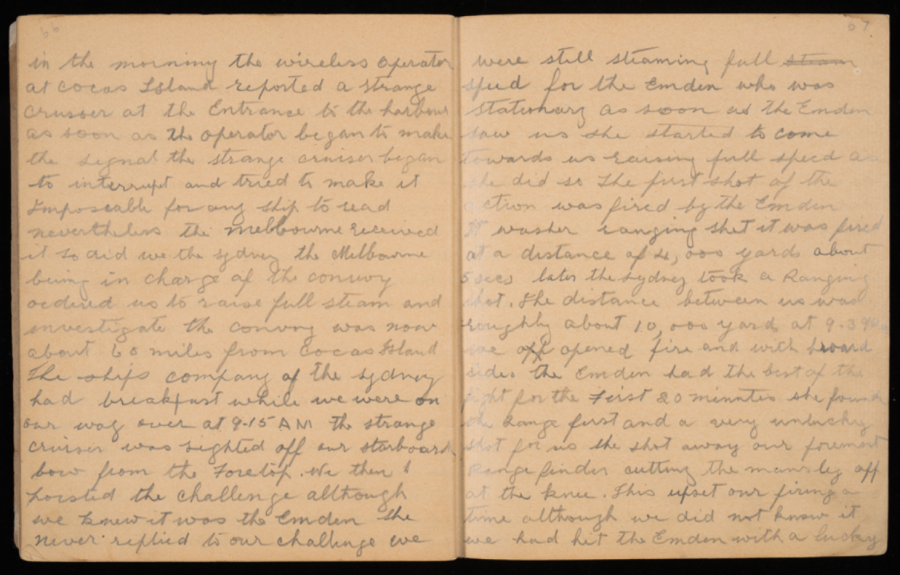 66
in the morning the wireless operator
at cocas Island reported a strange
Crusser at the Entrance to the harbour
as soon as the operator began to make
the signal the strange cruiser began
to interrupt and tried to make it
Impossable for any ship to read
nevertheless the melbourne received
it so did we the sydney the Melbourne
being in charge of the convoy
ordered us to raise full steam and
investigate the convoy was now
about 60 miles from Cocas Island
The ships company of the sydney
had breakfast while we were on
our way over at 9-15 AM the strange
cruiser was sighted off our starboard
bow from the Foretop. We then
hoisted the challenge although
we knew it was the Emden she
never replied to our challenge we
67
were still steaming full steam
speed for the Emden who was
stationary as soon as the Emden
saw us she started to come
towards us raising full speed as
she did so The first shot of the
action was fired by the Emden
It was her ranging shot it was fired
at a distance of yards about
5 secs later the Sydney took a Ranging
shot. The distance between us was
roughly about 10,000 yards at 9-39
we opened fire and with broard
sides the Emden had the best of the
fight for the First 20 minutes she found
the Range first and a very unlucky
shot for us she shot away our foremost
Range finder cutting the mans leg off
at the knee. This upset our firing a
time although we did not know it
we had hit the Emden with a lucky